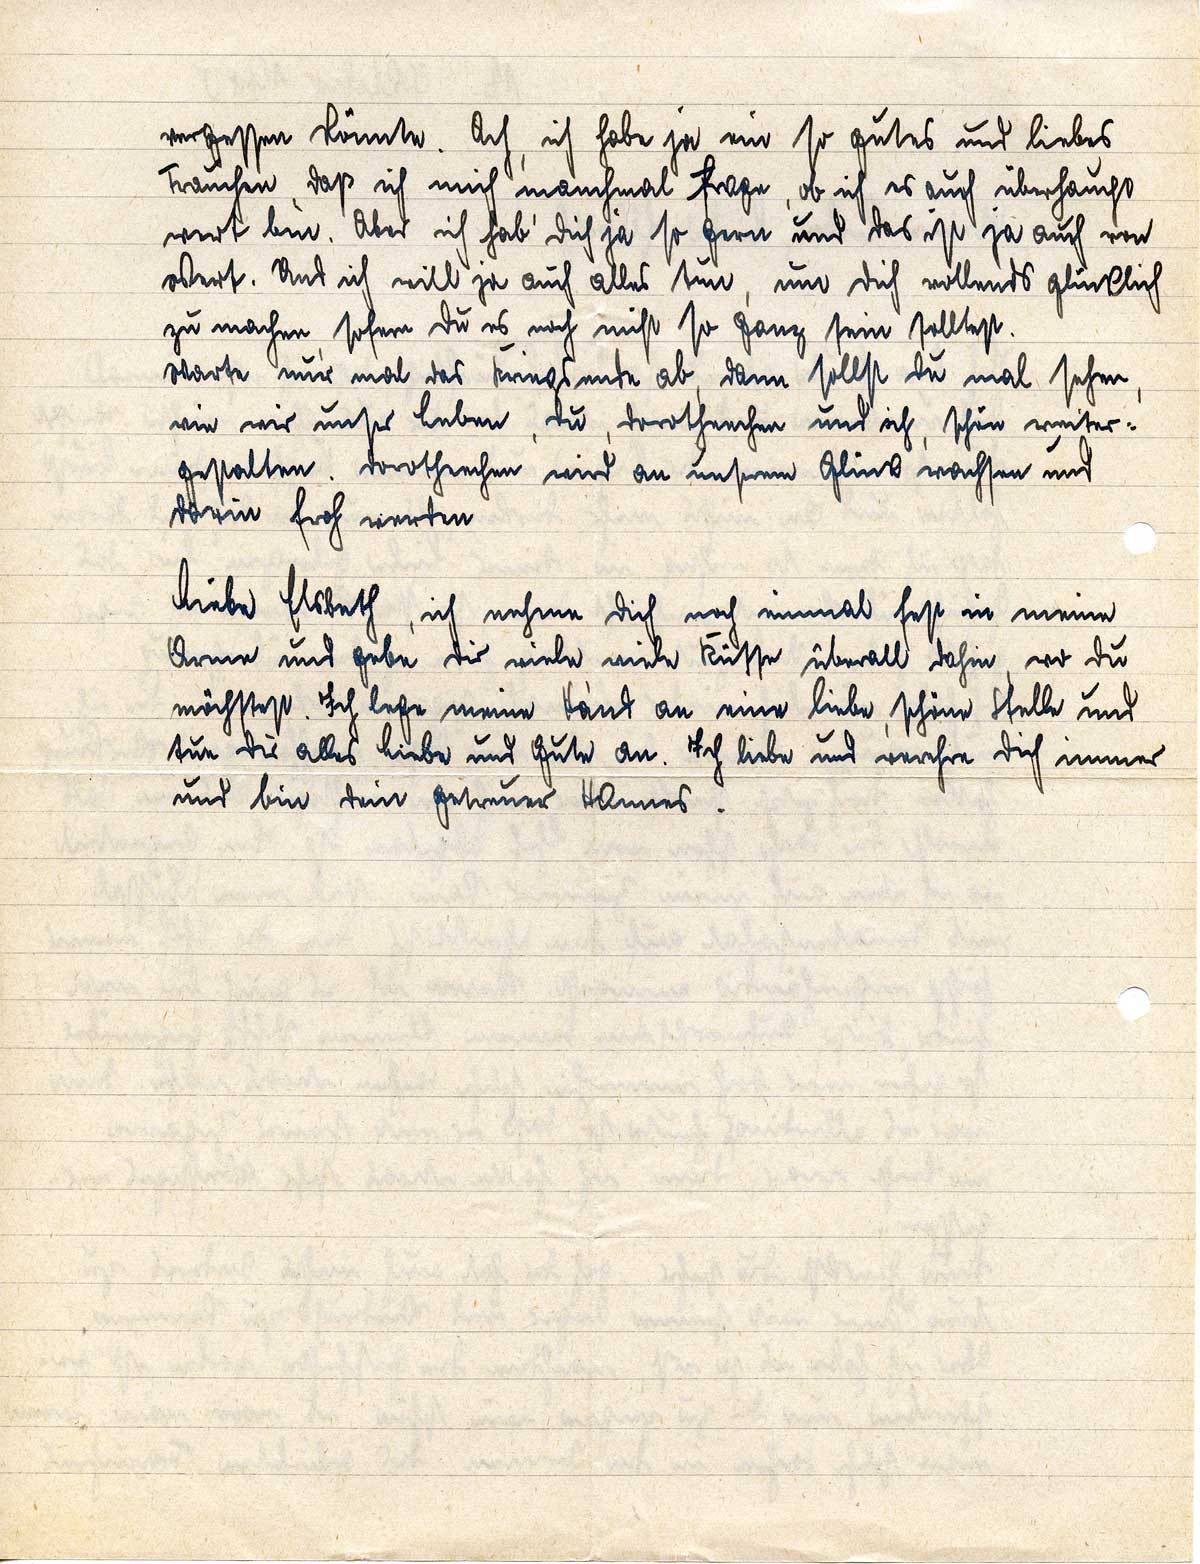 vergessen könnte. Ach, ich habe ja ein so gutes und liebes
Frauchen, daß ich mich manchmal frage, ob ich es auch überhaupt
wert bin. Aber ich hab' Dich ja so gern und das ist ja auch von
Wert. Und ich will ja auch alles tun, um Dich vollends glücklich
zu machen, sofern Du es noch nicht so ganz sein solltest.
Warte nur mal das Kriegsende ab, dann sollst Du mal sehen,
wie wir unser Leben, Du, Dorotheechen und ich, schön weiter-
gestalten. Dorotheechen wird an unserem Glück wachsen und
darin froh werden
Liebe Elsbeth, ich nehme Dich noch einmal fest in meine
Arme und gebe Dir viele viele Küsse überall dahin, wo Du
möchtest. Ich lege meine Hand an eine liebe, schöne Stelle und
tue Dir alles Liebe und Gute an. Ich liebe und verehre Dich immer
und bin Dein getreuer Hannes.